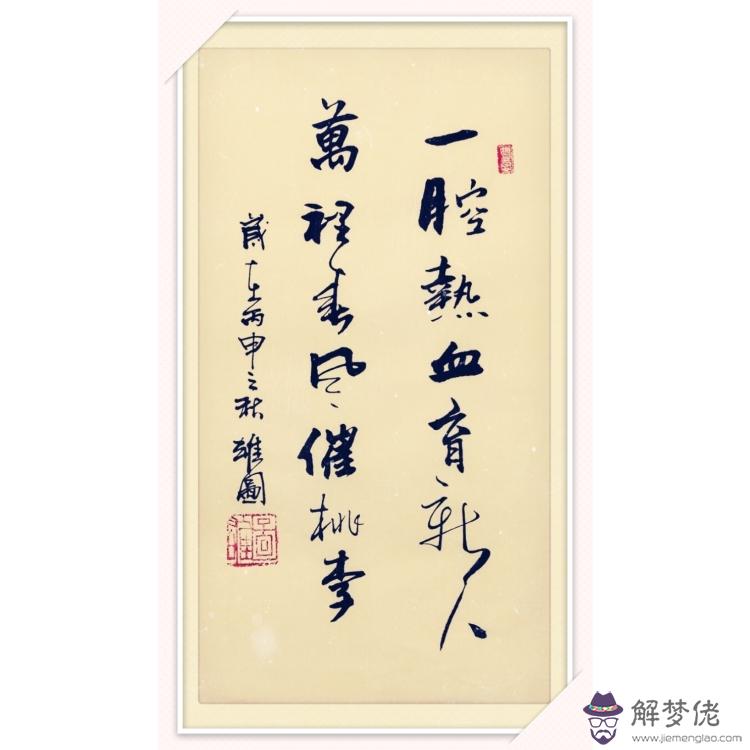 一腔熱血育新人
萬裡春風催桃李
歲在丙申之秋 雄圖
解梦佬
www.jiemenglao.com